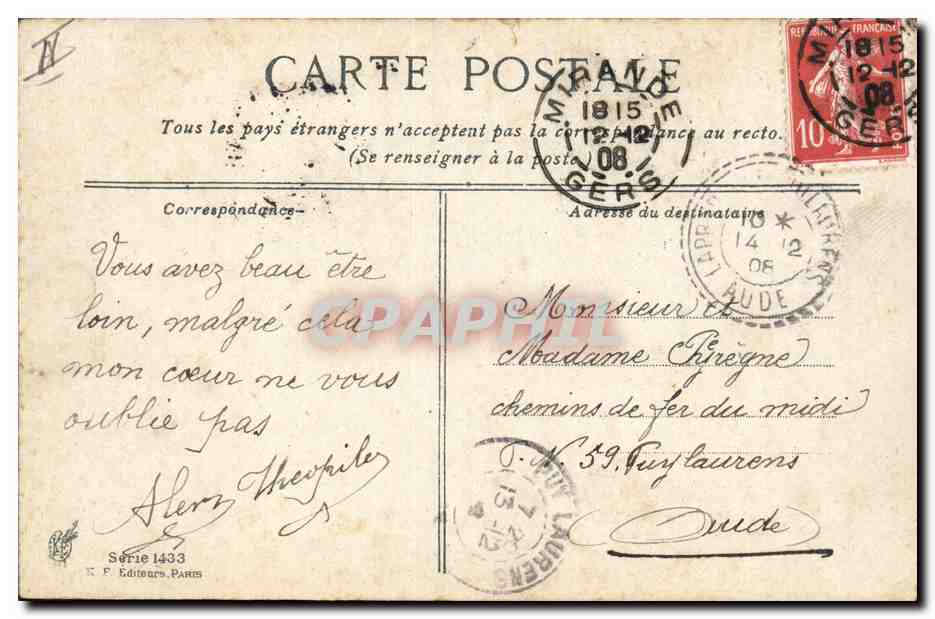 CARTE POSTALE
Tous les pays étrangers n'acceptent pas la correspondance au recto.
(Se renseigner à la poste)
MIRANDE
18 15
12-12
08
GERS
10
18 15
12-12
08
GERS
Correspondance
Adresse du destinataire
10 *
14 12
08
AUDE
Vous avez beau être
loin, malgré cela
mon cœur ne vous
oublie pas
Theophile
CPAPHIL
Monsieur et
Madame Pyrègne
chemins de fer du midi
P. N 59. Puylaurens
Aude
PUY LAURENS
13-12
Série 1433
K. F. Editeurs, PARIS